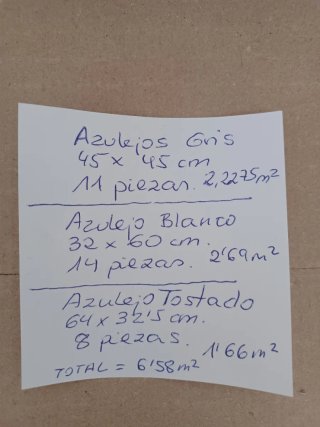 Azulejos Gris
45 x 45 cm
11 piezas. 2,2275 m²
Azulejo Blanco
32 x 60 cm.
14 piezas. 2'69 m²
Azulejo Tostado
64 x 32'5 cm.
8 piezas. 1'66 m²
TOTAL = 6'58 m²